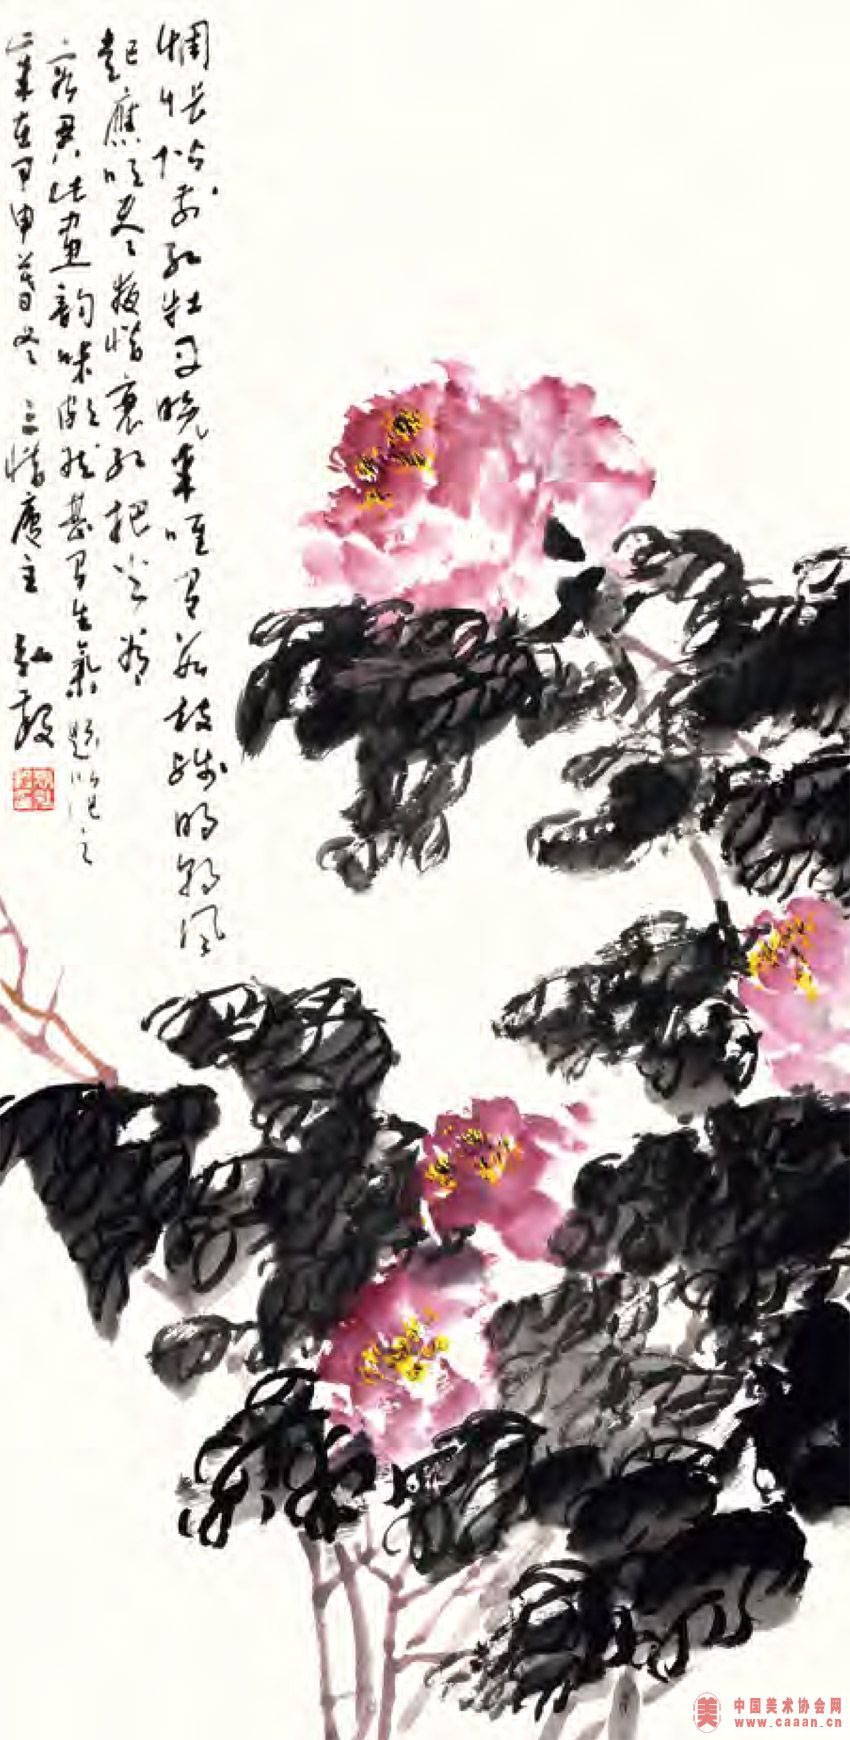 惆怅阶前红牡丹晚来唯有两枝残明朝风
起应吹尽夜惜衰红把火看
君此画韵味颇然甚有生气题以记之
岁在甲申暮冬三惜唐主
中国美术协会网
www.caaan.cn